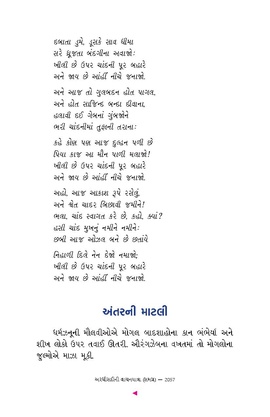 દબાતા ડુમે, ડૂસકે સાવ ધીમા
સરે ધ્રૂજતા બંદગીના અવાજોઃ
ખીલી છે ઉપર ચાંદની પૂર બહારે
અને જાય છે આંહીં નીચે જનાજો.
અને આજ તો ગુલબદન હોત પાગલ,
અને હોત સાજિન્દ બન્દા દીવાના,
હલાવી દઈ ગેબનાં ગુંબજોને
ભરી ચાંદનીમાં તુફાની તરાનાઃ
કહે કોણ પણ આજ દુલ્હન પળી છે
પિયા કાજ આ મૌન પાળી મલાજો!
ખીલી છે ઉપર ચાંદની પૂર બહારે
અને જાય છે આંહીં નીચે જનાજો.
અહો, આજ આકાશ રૂપે રસેલું,
અને શ્વેત ચાદર બિછાવી જમીને!
ભલા, ચાંદ સ્વાગત કરે છે, કહો, ક્યાં?
હસી ચાંદ મુખનું નમીને નમીનેઃ
છબી આજ ઓઝલ બને છે છતાંયે
નિહાળી દિલે નેન દેજો નવાજોઃ
ખીલી છે ઉપર ચાંદની પૂર બહારે
અને જાય છે આંહીં નીચે જનાજો.
અંતરની માટલી
ધર્મઝનૂની મૌલવીઓએ મોગલ બાદશાહોના કાન ભંભેર્યા અને
શીખ લોકો ઉપર તવાઈ ઊતરી. ઔરંગઝેબના વખતમાં તો મોગલોના
જુલ્મોએ માઝા મૂકી.